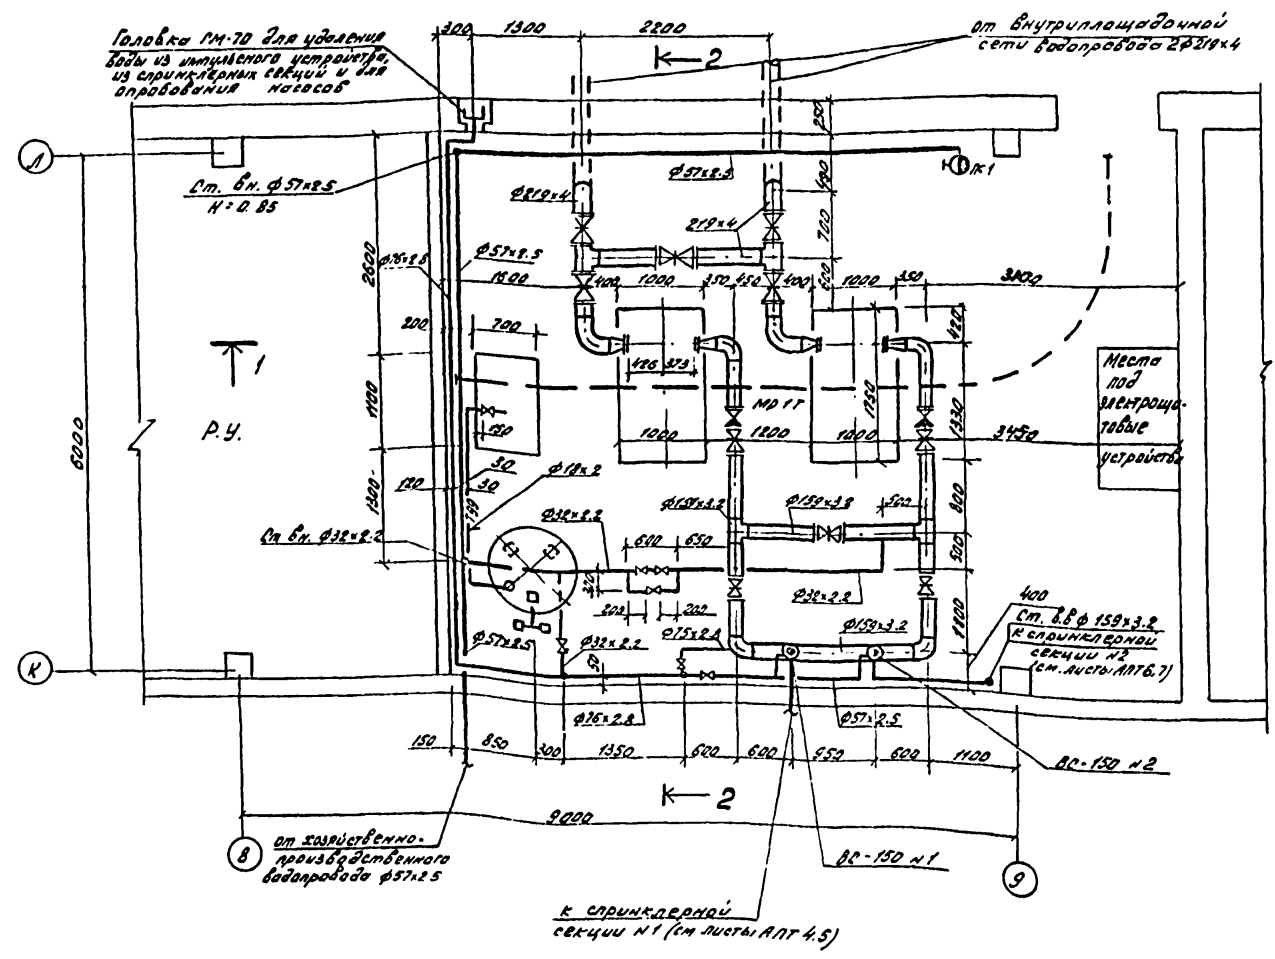 Головка ГМ-70 для удаления
воды из импульсного устройства,
из спринклерных секций и для
опробования насосов
300
1300
2200
2
от внутриплощадочной
сети водопровода 2ф219×4
250
490
700
600
Л
Ст. вн. ф57×2.5
Н=0.85
ф57×2.5
ПК1
ф219×4
219×4
ф76×2.8
ф57×2.5
2600
1600
400
1000
350
450
400
1000
350
3100
200
700
420
1
426
373
МР1Т
1750
1330
Места
под
электрощи-
товые
устройства
1100
Р.У.
150
1000
1200
1000
3450
6000
1300
120
30
30
ф18×2
190
ф32×2.2
ф159×3.2
ф159×3.2
500
800
Ст вн. ф32×2.2
600
650
500
320
200
200
ф32×2.2
400
Ст. в.в ф 159×3.2
к спринклерной
секции №2
(см. листы АПТ 6,7)
ф57×2.5
ф32×2.2
ф159×3.2
1200
К
50
ф76×2.8
ф57×2.5
150
850
300
1350
600
600
950
600
1100
ВС-150 №2
2
9000
8
от хозяйственно-
производственного
водопровода ф57×2.5
ВС-150 №1
9
к спринклерной
секции №1 (см листы АПТ 4.5)